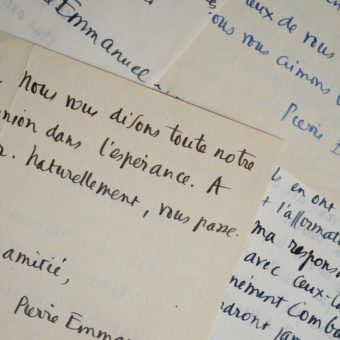 Emmanuel
eux de vous
ous vous aimons
Pierre E
Nous vous disons toute notre
nion dans l'espérance. A
r. naturellement, vous passe
amitié,
Pierre Emma
en ont
l'affirmat
ma respons
avec ceux-l
nément Comba
dront jam